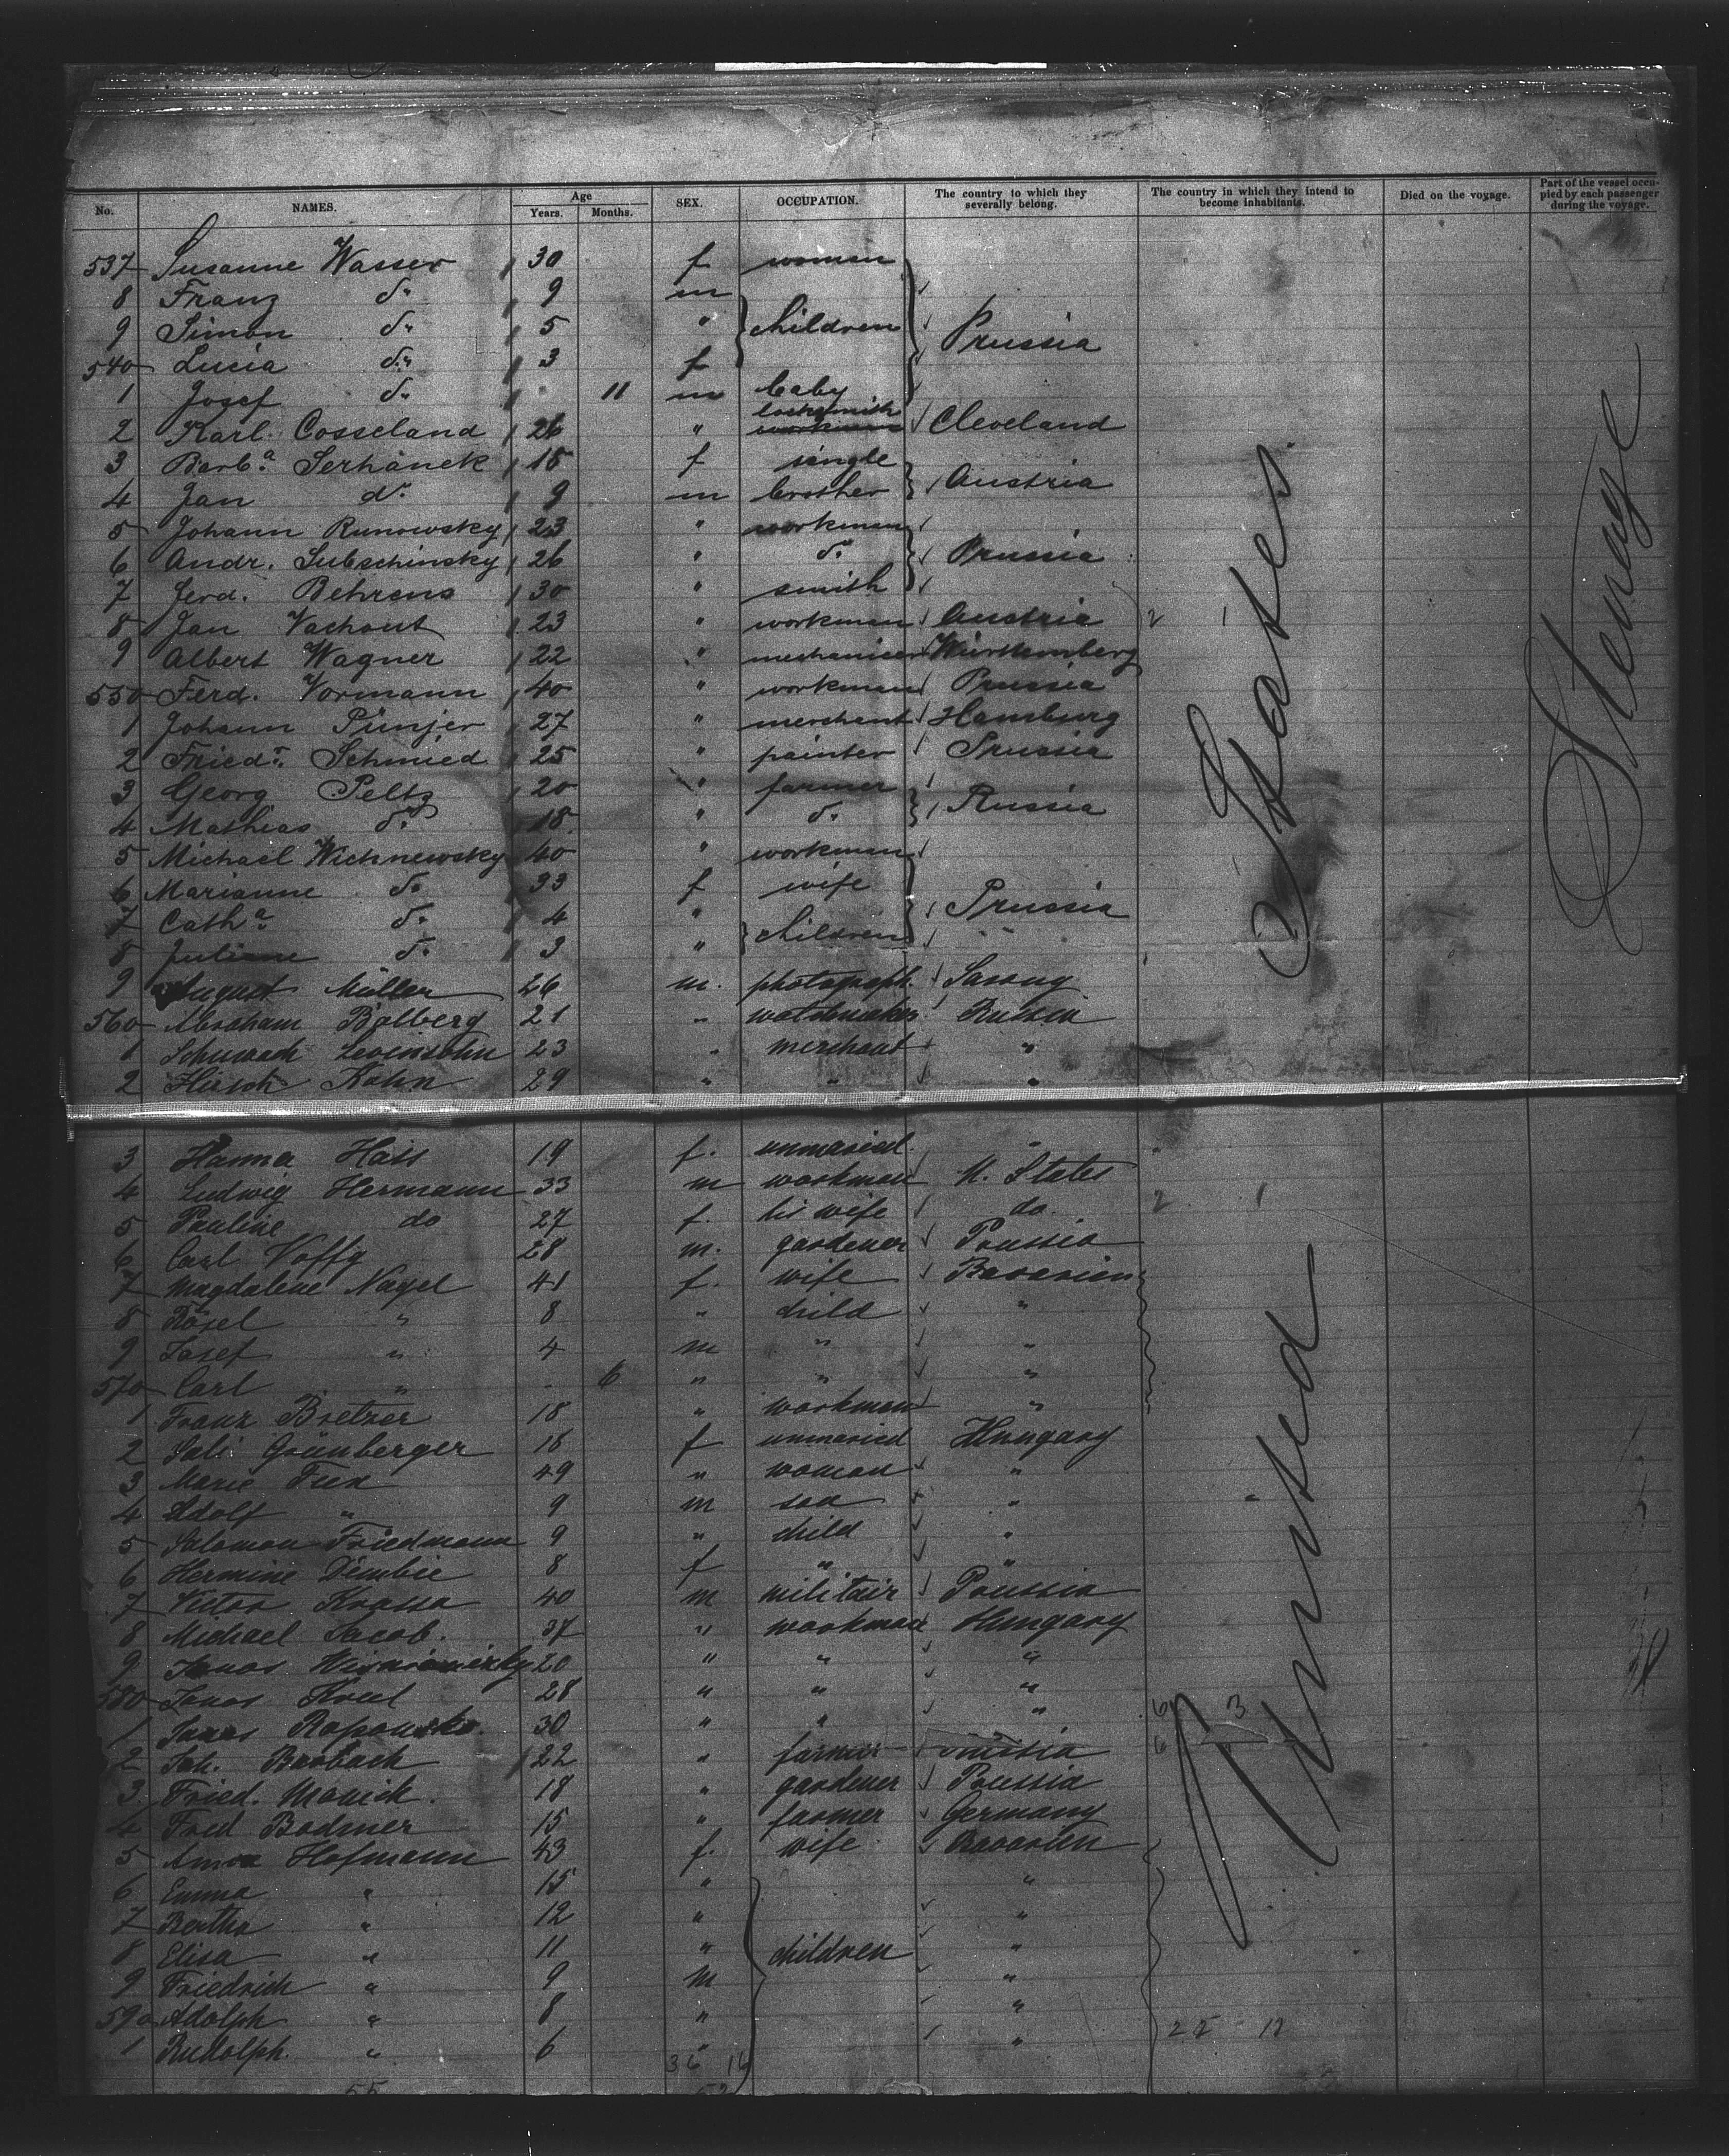 No. NAMES. Age Years. Months. SEX. OCCUPATION. The country to which they severally belong. The country in which they intend to become inhabitants. Died on the voyage. Part of the vessel occupied by each passenger during the voyage.
537 Susanne Wasser 30 f woman
8 Franz do. 9 m
9 Simon do. 5 " children Prussia
540 Lucia do. 3 f
1 Josef do. 11 m baby
2 Karl Cosseland 26 " locksmith Cleveland
3 Barba. Serhánek 18 f single
4 Jan do. 9 m brother Austria
5 Johann Runowsky 23 " workman
6 Andr. Subschinsky 26 " do. Prussia
7 Ferd. Behrens 30 " smith
8 Jan Vachout 23 " workman Austria 2 1
9 Albert Wagner 22 " mechanicer Württemberg
550 Ferd. Vormann 40 " workman Prussia
1 Johann Pünjer 27 " merchant Hamburg
2 Friedr. Schmied 25 " painter Prussia
3 Georg Peltz 20 " farmer
4 Mathias do. 18 " do. Russia
5 Michael Wichnewsky 40 " workman
6 Marianne do. 33 f wife
7 Catha. do. 4 " Prussia
8 Juliane do. 3 " children
9 August Müller 26 m. photograph.
560 Abraham Bolberg 21 " watchmaker Russia
1 Levinsohn 23 " merchant "
2 Hirsch Kohn 29 " " "
3 Hanna Hass 19 f. unmaried. "
4 Ludwig Hermann 33 m workman U. States
5 Pauline do 27 f. his wife do. 2 1
6 Carl Voffy 28 m. gardener Prussia
7 Magdalene Nagel 41 f. wife Bavarien
8 Rösel " 8 " child "
9 Josef " 4 m " "
570 Carl " 6 " " "
1 Franz Bretzer 18 " workman "
2 Sali Grünberger 18 f unmaried Hungary
3 Marie 49 " woman "
4 Adolf " 9 m son "
5 Salomon Friedmann 9 " child "
6 Hermine Dembie 8 f " "
7 Victor Krassa 40 m militair Prussia
8 Michael Jacob. 37 " workman Hungary
9 20 " " "
580 28 " " " 6 3
1 30 " " "
2 Joh. Barbach 22 " farmer 6
3 Fried. Monich. 18 " gardener Prussia
4 Fred Bodmer 15 " farmer Germany
5 Anna Hofmann 43 f. wife Bavarien
6 Emma " 15 " "
7 Bertha " 12 " "
8 Elisa " 11 " children "
9 Friedrich " 9 m "
590 Adolph " 8 " "
1 Rudolph. " 6 " "
36 16
55 52
United States.
Sterage